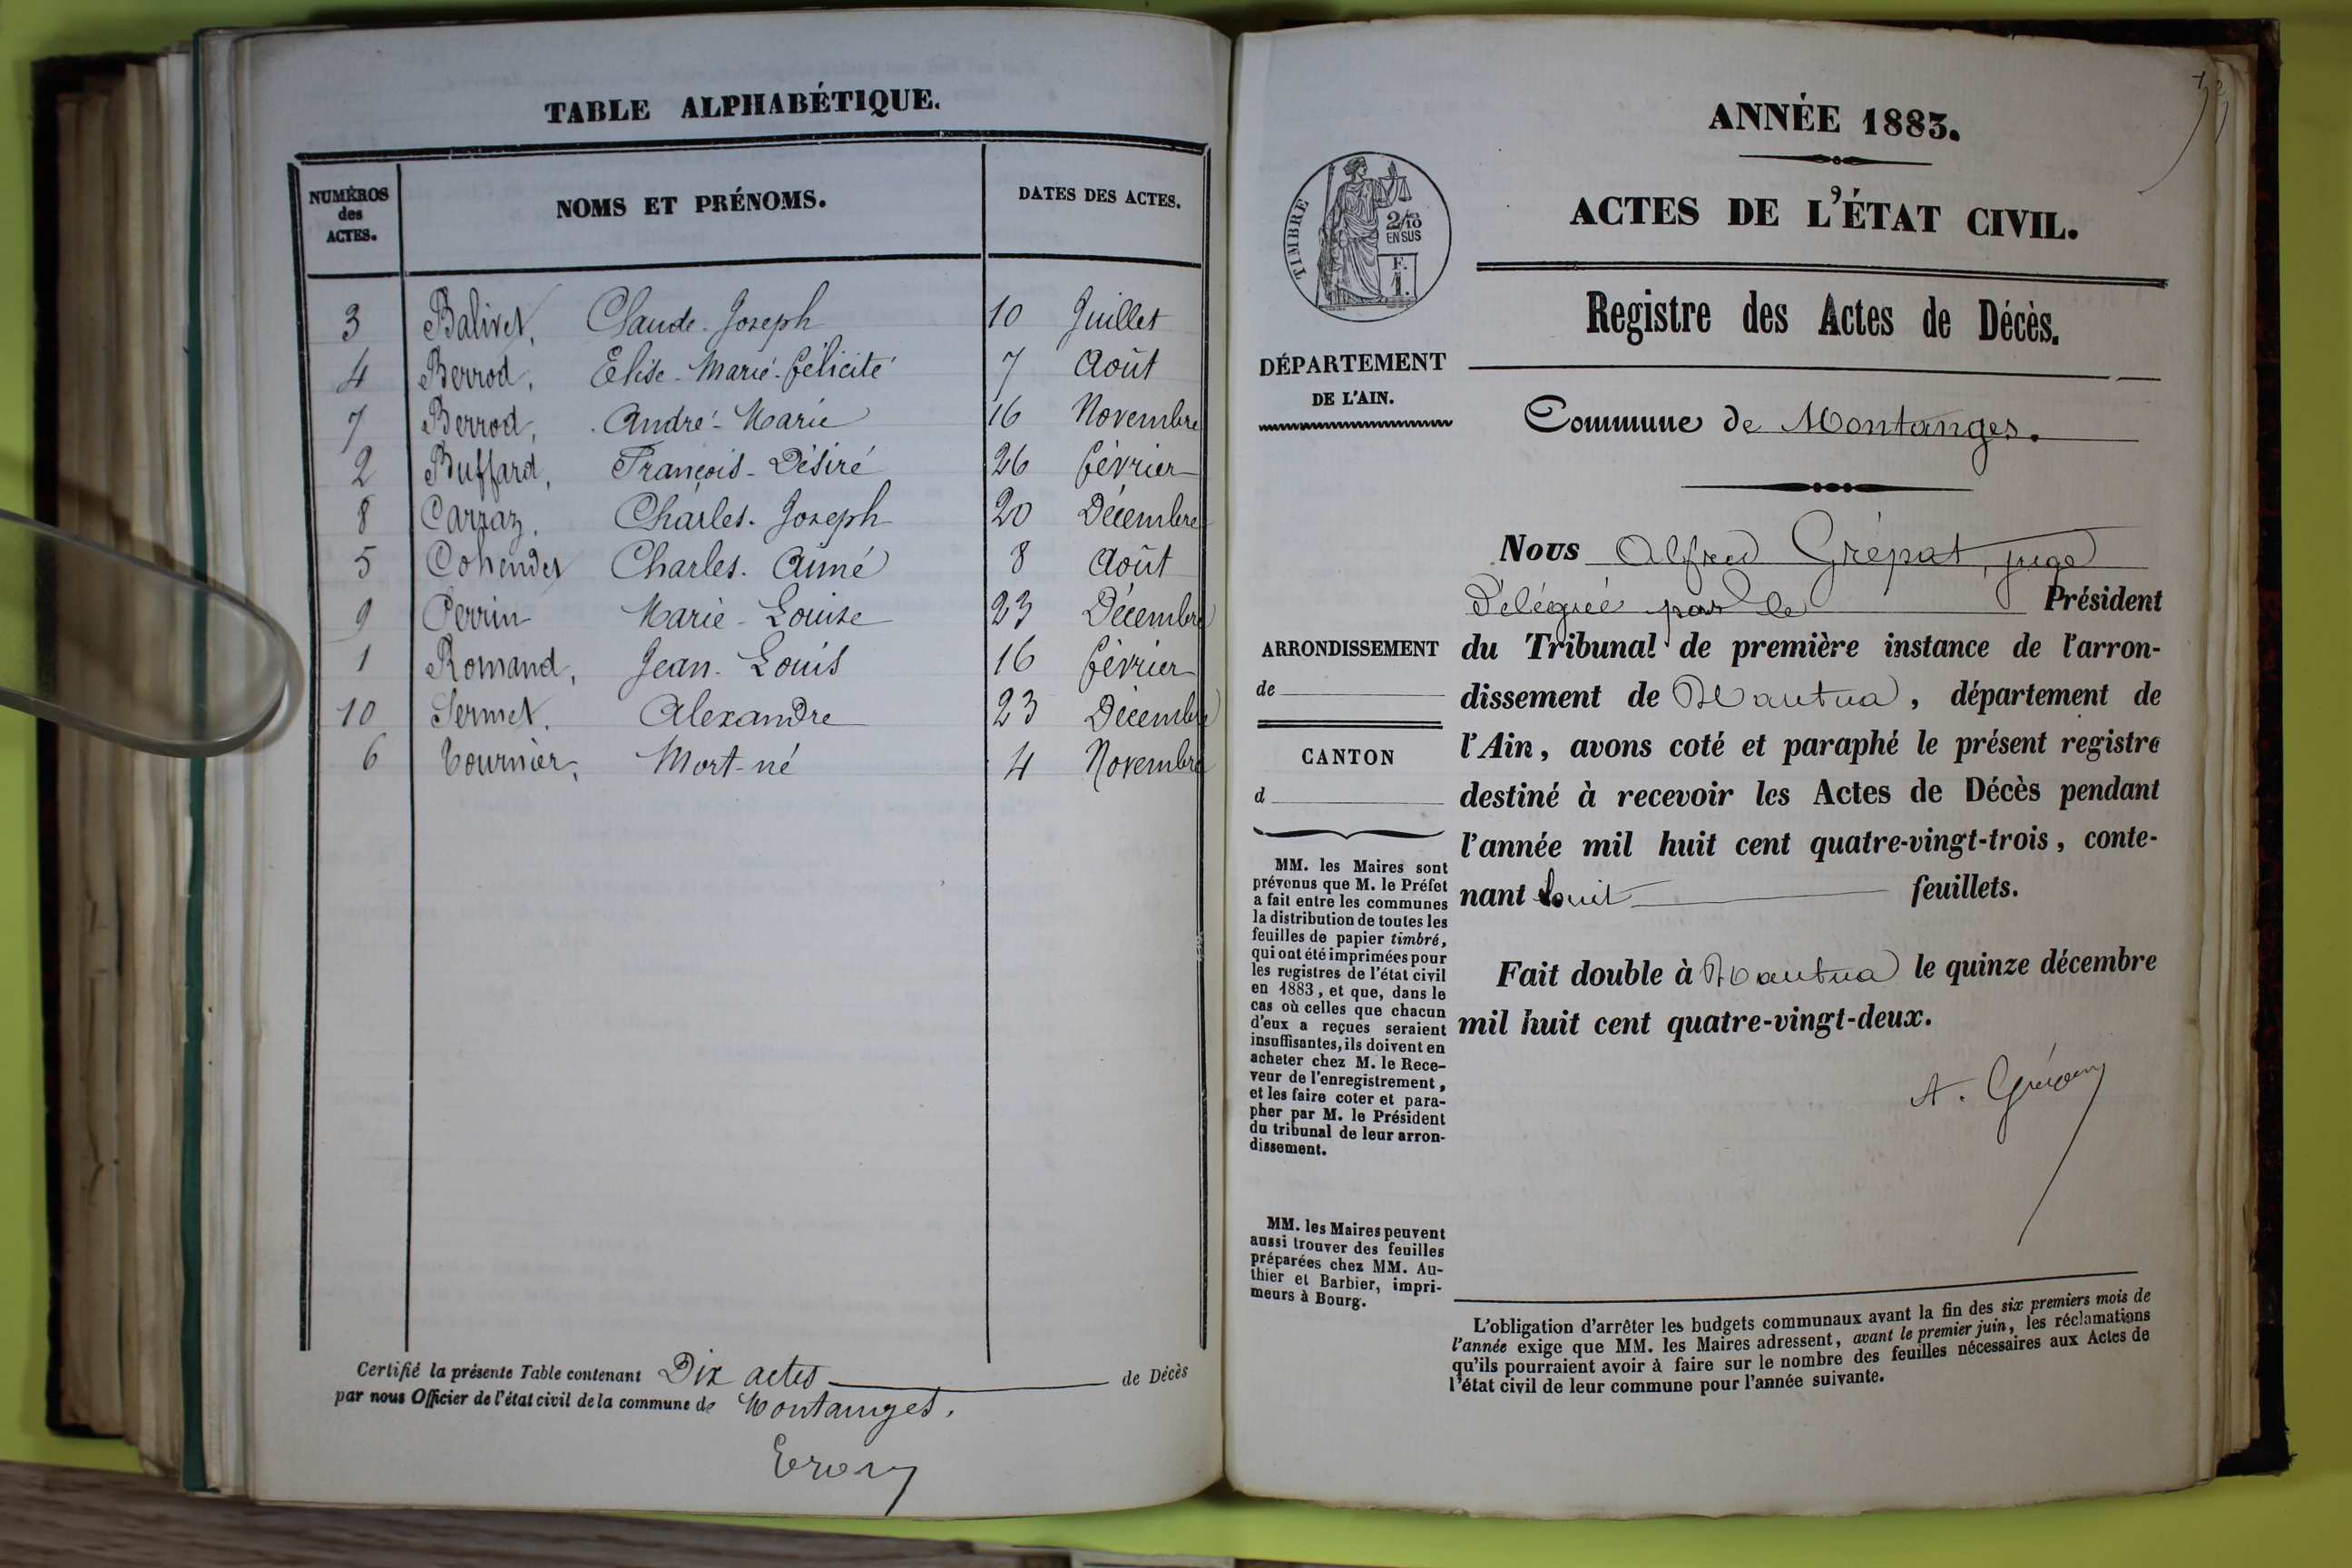 TABLE ALPHABÉTIQUE.
NUMÉROS des ACTES.
NOMS ET PRÉNOMS.
DATES DES ACTES.
3 Balivet, Claude-Joseph 10 Juillet
4 Berrod, Elise-Marie-félicité 7 Août
7 Berrod, André-Marie 16 Novembre
2 Buffard, François-Désiré 26 février
8 Carraz, Charles-Joseph 20 Décembre
5 Cohendet Charles-Aimé 8 Août
9 Perrin Marie-Louise 23 Décembre
1 Romand, Jean-Louis 16 février
10 Sermet, Alexandre 23 Décembre
6 Tournier, Mort-né 4 Novembre
Certifié la présente Table contenant Dix actes de Décès
par nous Officier de l'état civil de la commune de Montanges.
ANNÉE 1883.
ACTES DE L'ÉTAT CIVIL.
TIMBRE
2/10
EN SUS
F.
1.
Registre des Actes de Décès.
DÉPARTEMENT
DE L'AIN.
Commune de Montanges.
Nous Alfred Grépat, juge
Délégué par le Président
du Tribunal de première instance de l'arron-
dissement de Nantua, département de
l'Ain, avons coté et paraphé le présent registre
destiné à recevoir les Actes de Décès pendant
l'année mil huit cent quatre-vingt-trois, conte-
nant huit feuillets.
Fait double à Nantua le quinze décembre
mil huit cent quatre-vingt-deux.
ARRONDISSEMENT
de
CANTON
d
MM. les Maires sont
prévenus que M. le Préfet
a fait entre les communes
la distribution de toutes les
feuilles de papier timbré,
qui ont été imprimées pour
les registres de l'état civil
en 1883, et que, dans le
cas où celles que chacun
d'eux a reçues seraient
insuffisantes, ils doivent en
acheter chez M. le Rece-
veur de l'enregistrement,
et les faire coter et para-
pher par M. le Président
du tribunal de leur arron-
dissement.
MM. les Maires peuvent
aussi trouver des feuilles
préparées chez MM. Au-
thier et Barbier, impri-
meurs à Bourg.
L'obligation d'arrêter les budgets communaux avant la fin des six premiers mois de
l'année exige que MM. les Maires adressent, avant le premier juin, les réclamations
qu'ils pourraient avoir à faire sur le nombre des feuilles nécessaires aux Actes de
l'état civil de leur commune pour l'année suivante.